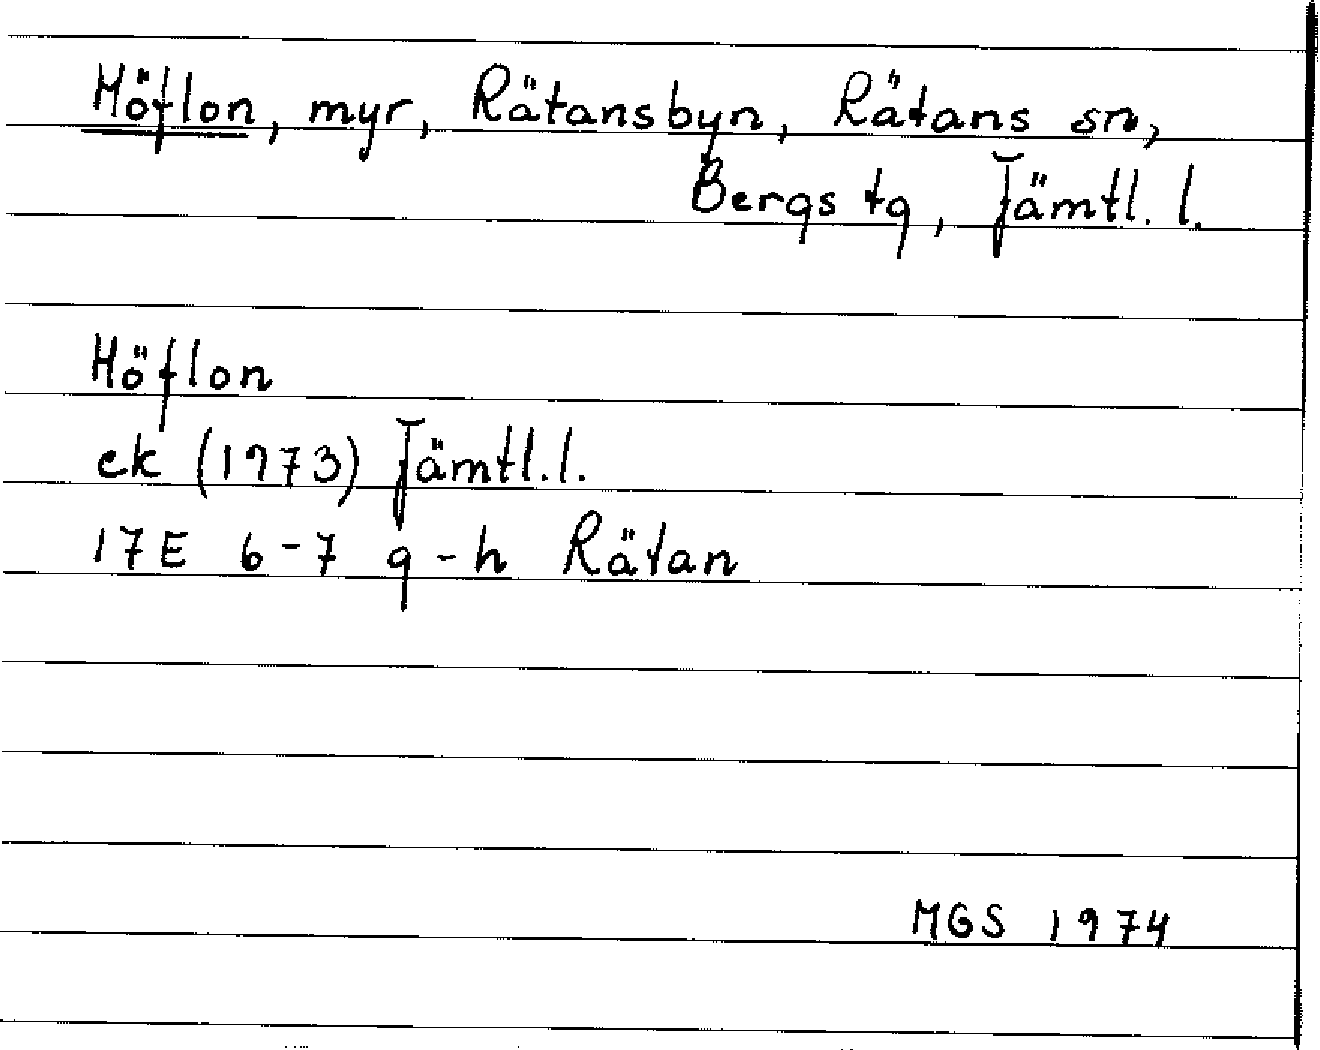 Höflon, myr, Rätansbyn, Rätans sn,
Bergs tg, Jämtl. l.
Höflon
ek (1973) Jämtl. l.
17E 6-7 g-h Rätan
MGS 1974